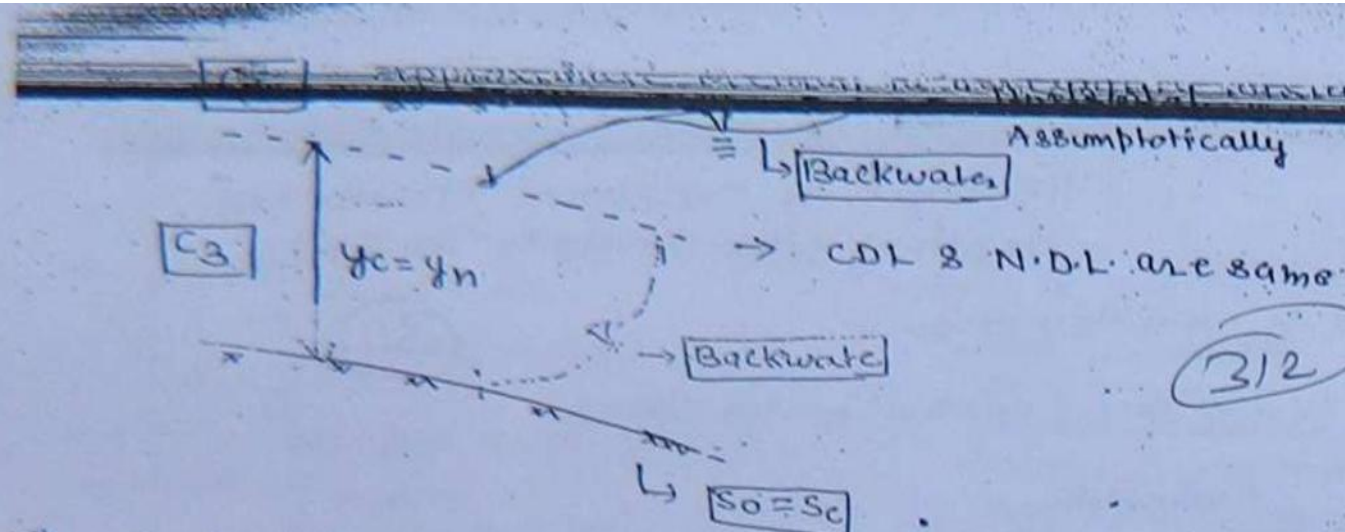 Assumptotically
Backwater
C3
yc = yn
→ CDL & N.D.L. are same
→ Backwate
312
So = Sc